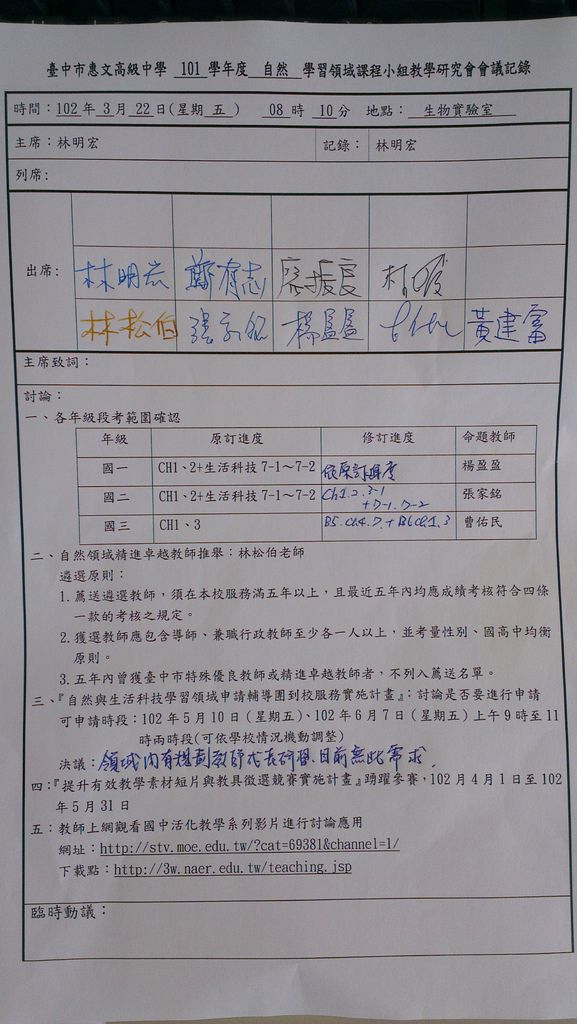 臺中市惠文高級中學 101 學年度 自然 學習領域課程小組教學研究會會議記錄
時間：102 年 3 月 22 日(星期 五 ) 08 時 10 分 地點： 生物實驗室
主席：林明宏 記錄： 林明宏
列席：
出席：
林明宏 鄭有志 廖振良
林松伯 張家銘 楊盈盈 黃建富
主席致詞：
討論：
一、各年級段考範圍確認
年級 原訂進度 修訂進度 命題教師
國一 CH1、2+生活科技 7-1～7-2 依原訂進度 楊盈盈
國二 CH1、2+生活科技 7-1～7-2 Ch1.2.3-1 +7-1.7-2 張家銘
國三 CH1、3 B5.Ch4.7.+B6Ch1.3 曹佑民
二、自然領域精進卓越教師推舉：林松伯老師
遴選原則：
1.薦送遴選教師，須在本校服務滿五年以上，且最近五年內均應成績考核符合四條
一款的考核之規定。
2.獲選教師應包含導師、兼職行政教師至少各一人以上，並考量性別、國高中均衡
原則。
3.五年內曾獲臺中市特殊優良教師或精進卓越教師者，不列入薦送名單。
三、『自然與生活科技學習領域申請輔導團到校服務實施計畫』：討論是否要進行申請
可申請時段：102 年 5 月 10 日(星期五)、102 年 6 月 7 日(星期五)上午 9 時至 11
時兩時段(可依學校情況機動調整)
決議：領域內有規劃教師成長研習、目前無此需求.
四：『提升有效教學素材短片與教具徵選競賽實施計畫』踴躍參賽，102 月 4 月 1 日至 102
年 5 月 31 日
五：教師上網觀看國中活化教學系列影片進行討論應用
網址：http://stv.moe.edu.tw/?cat=69381&channel=1/
下載點：http://3w.naer.edu.tw/teaching.jsp
臨時動議：